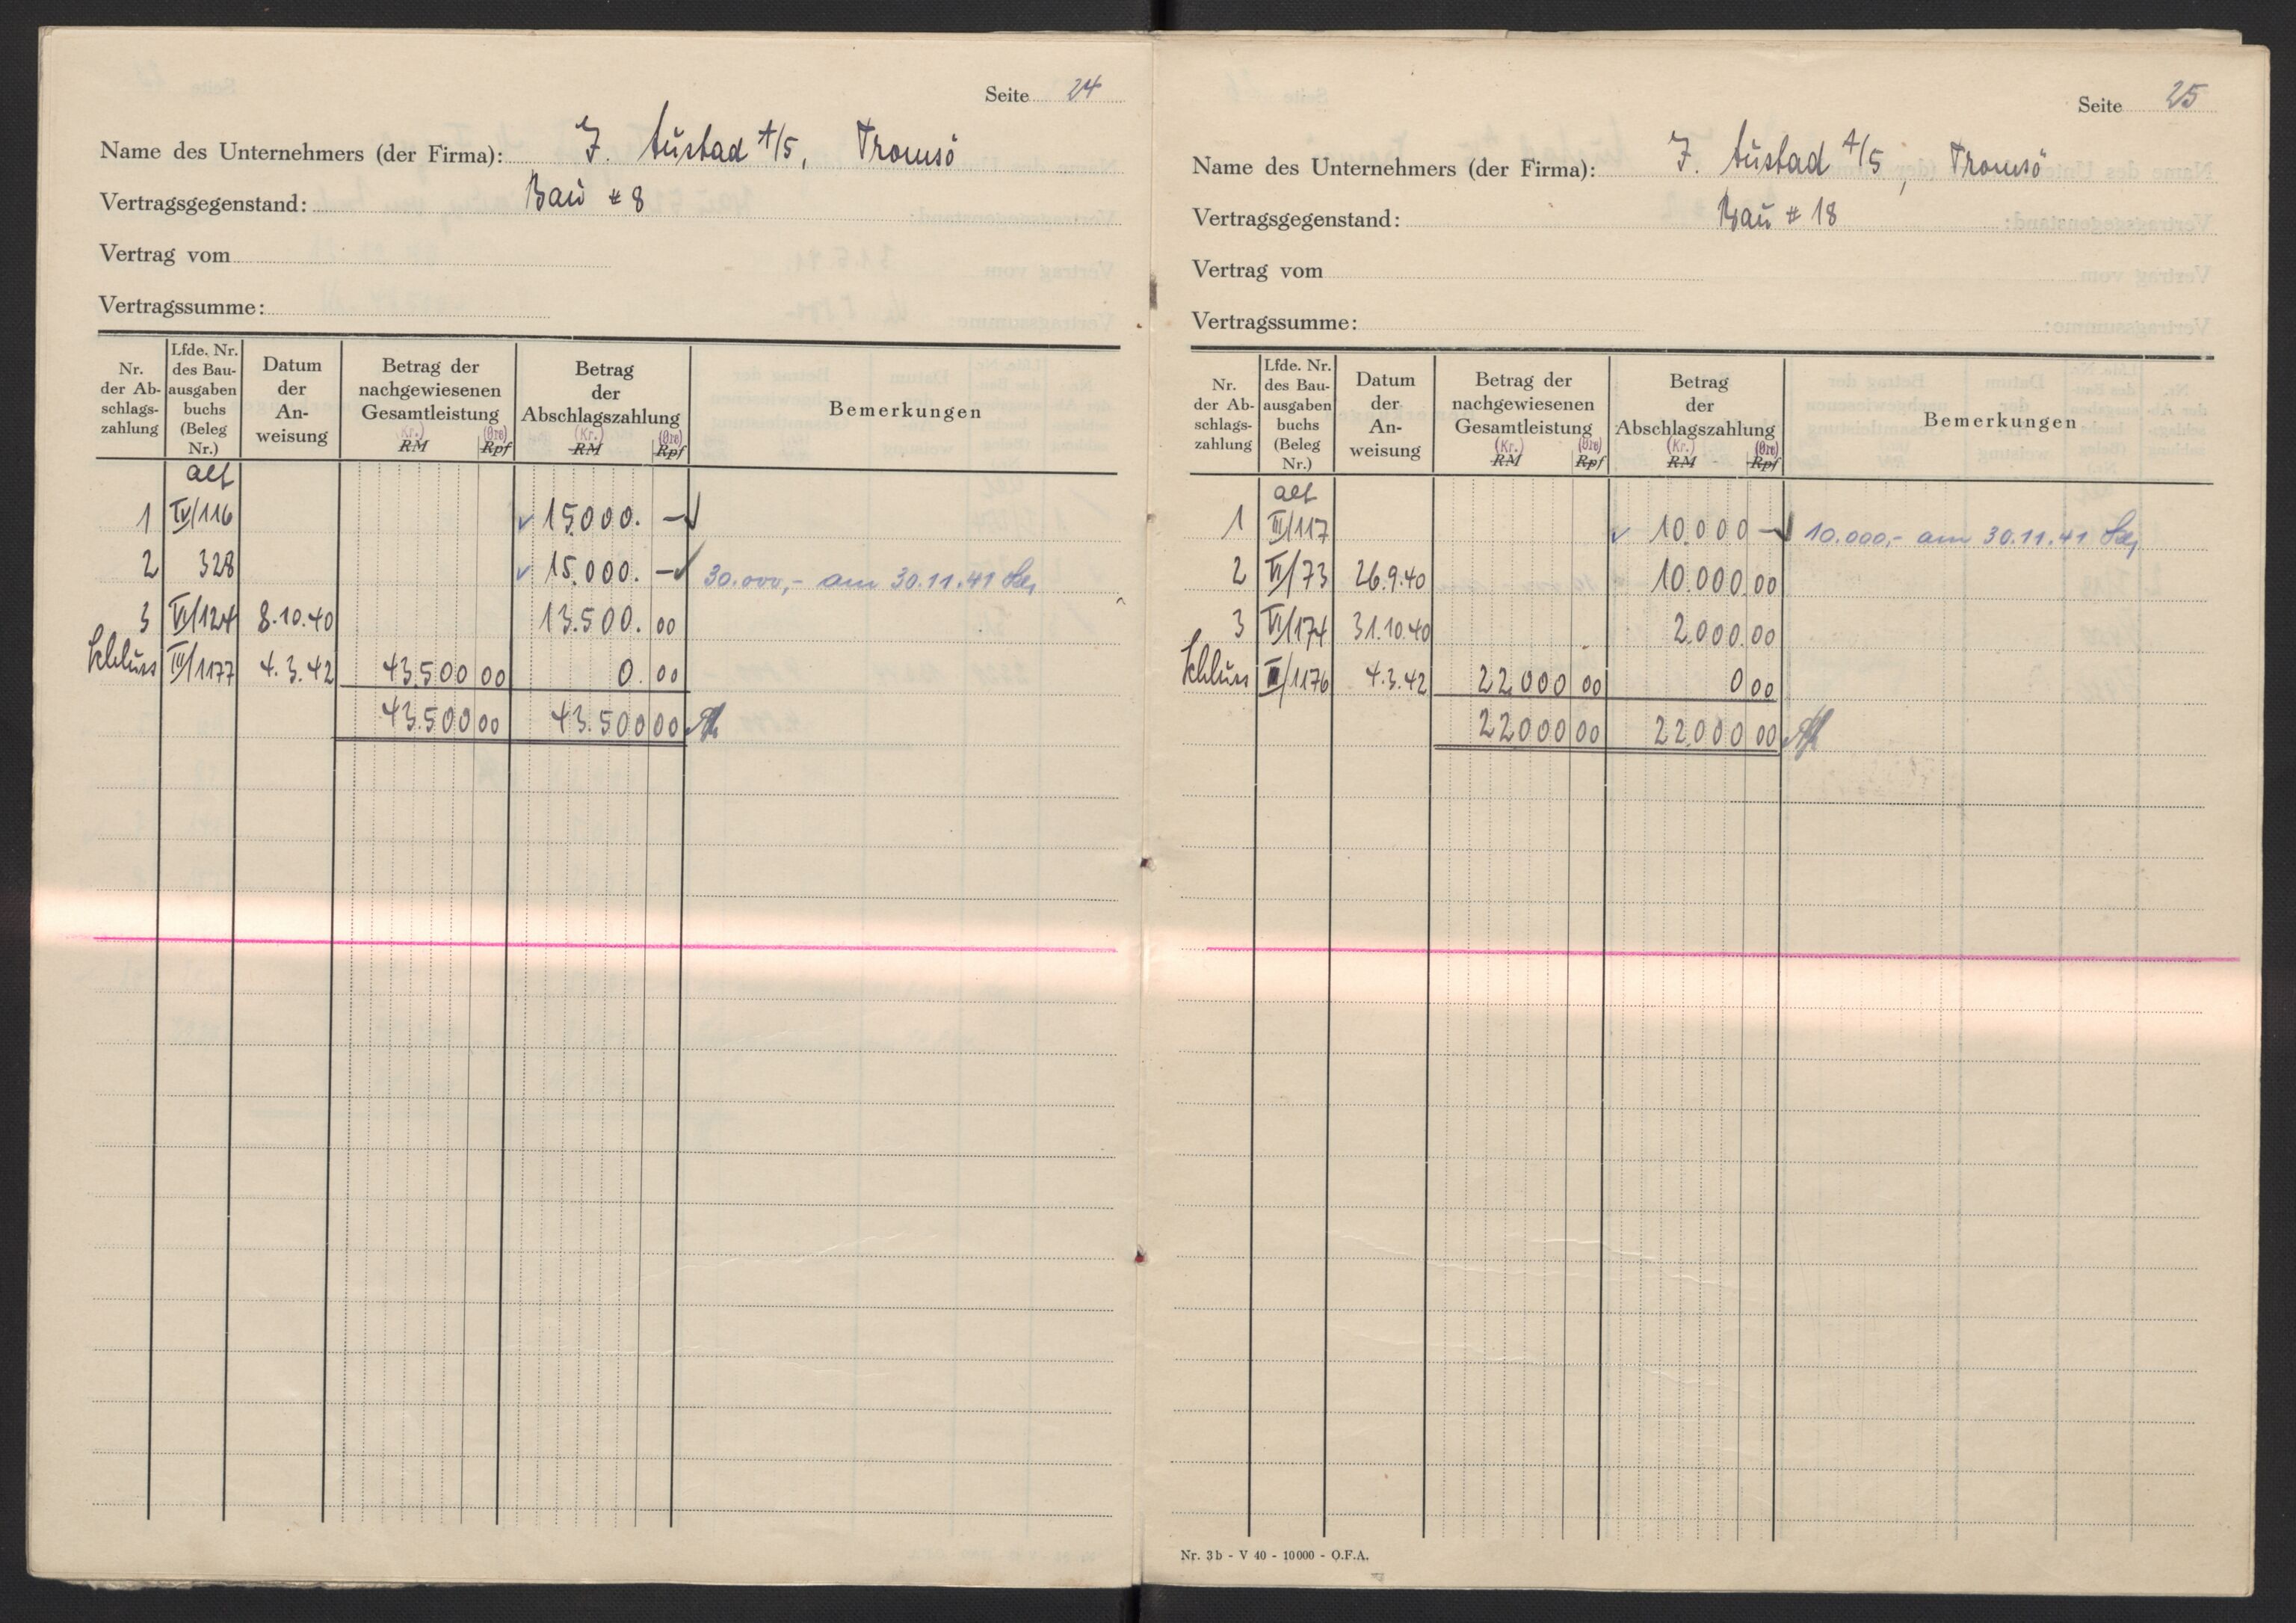 Seite 24
Name des Unternehmers (der Firma): J. Aústad A/S, Tromsö
Vertragsgegenstand: Baú # 8
Vertrag vom
Vertragssumme:
Nr. der Abschlagszahlung | Lfde. Nr. des Bauausgabenbuchs (Beleg Nr.) | Datum der Anweisung | Betrag der nachgewiesenen Gesamtleistung (Kr.) RM (Øre) Rpf | Betrag der Abschlagszahlung (Kr.) RM (Øre) Rpf | Bemerkungen
alt
1 IV/116 15.000. —
2 328 15.000. — 30.000,- am 30.11.41
3 VI/124 8.10.40 13.500. 00
Schluss III/1177 4.3.42 43.500 00 0. 00
43.500 00 43.500 00
Seite 25
Name des Unternehmers (der Firma): J. Aústad A/S, Tromsö
Vertragsgegenstand: Baú # 18
Vertrag vom
Vertragssumme:
Nr. der Abschlagszahlung | Lfde. Nr. des Bauausgabenbuchs (Beleg Nr.) | Datum der Anweisung | Betrag der nachgewiesenen Gesamtleistung (Kr.) RM (Øre) Rpf | Betrag der Abschlagszahlung (Kr.) RM (Øre) Rpf | Bemerkungen
alt
1 III/117 10.000 — 10.000,- am 30.11.41
2 VI/73 26.9.40 10.000.00
3 VI/174 31.10.40 2.000.00
Schluss /1176 4.3.42 22000 00 0 00
22000 00 22000 00
Nr. 3b - V 40 - 10000 - O.F.A.